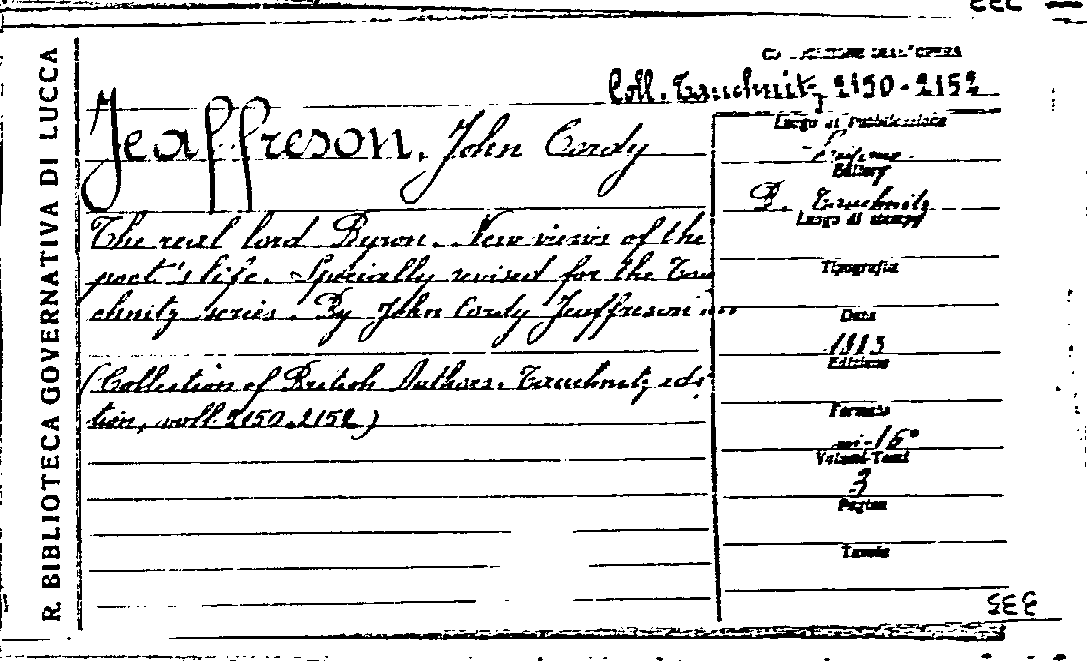 R. BIBLIOTECA GOVERNATIVA DI LUCCA
COLLOCAZIONE DELL'OPERA
Coll. Tauchnitz 2150-2152
Jeaffreson, John Cordy
The real lord Byron. New views of the
poet's life. Specially revised for the Tau
chnitz series. By John Cordy Jeaffreson
(Collection of British Authors. Tauchnitz edi
tion, voll. 2150.2152)
Luogo di Pubblicazione
Editore
B. Tauchnitz
Luogo di stampa
Tipografia
Data
Edizione
Formato
in-16°
Volumi-Tomi
3
Pagine
Tavole
335